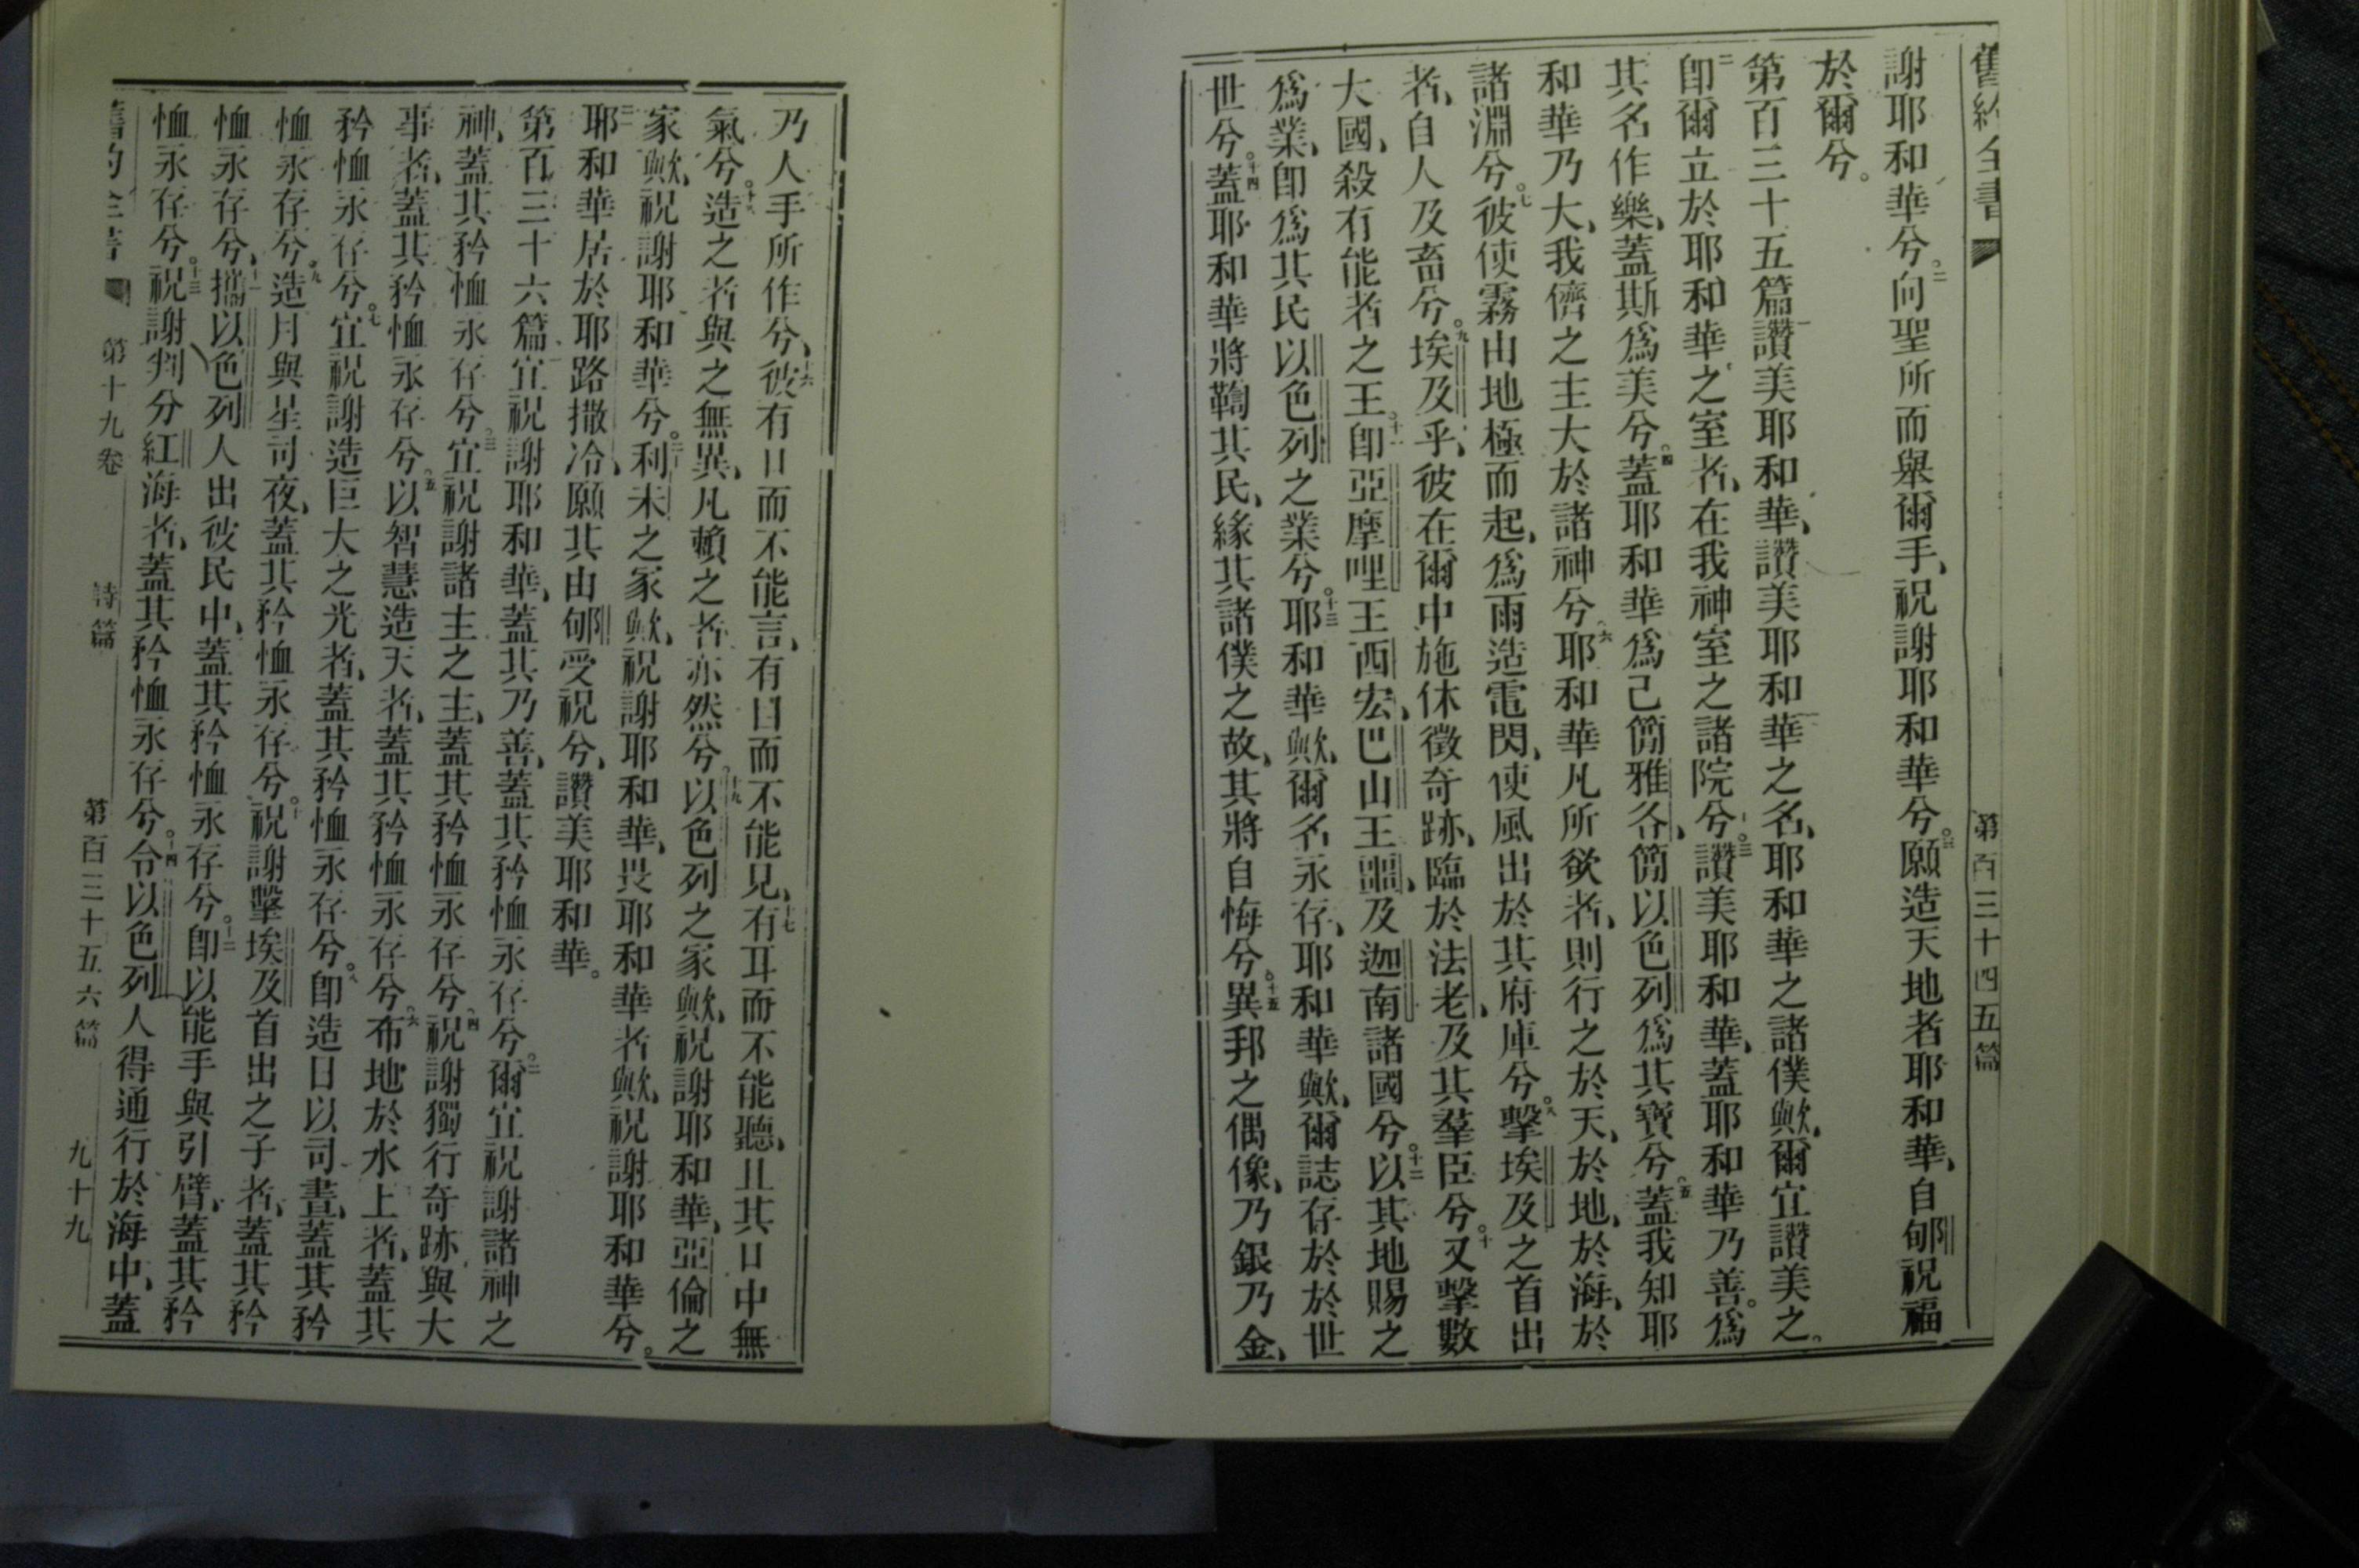 舊約全書
第百三十四五篇
謝耶和華兮。二向聖所而舉爾手、祝謝耶和華兮。三願造天地者耶和華、自郇祝福
於爾兮。
第百三十五篇一讚美耶和華、讚美耶和華之名、耶和華之諸僕歟、爾宜讚美之。
二即爾立於耶和華之室者、在我神室之諸院兮。三讚美耶和華、蓋耶和華乃善。爲
其名作樂、蓋斯爲美兮。四蓋耶和華爲己簡雅各、簡以色列爲其寶兮。五蓋我知耶
和華乃大、我儕之主大於諸神兮。六耶和華凡所欲者、則行之於天、於地、於海、於
諸淵兮。七彼使霧由地極而起、爲雨造電閃、使風出於其府庫兮。八擊埃及之首出
者、自人及畜兮。九埃及乎、彼在爾中施休徵奇跡、臨於法老、及其羣臣兮。十又擊數
大國、殺有能者之王。十一即亞摩哩王西宏、巴山王噩、及迦南諸國兮。十二以其地賜之
爲業、即爲其民以色列之業兮。十三耶和華歟、爾名永存、耶和華歟、爾誌存於於世
世兮。十四蓋耶和華將鞫其民、緣其諸僕之故、其將自悔兮。十五異邦之偶像、乃銀乃金、
乃人手所作兮、十六彼有口而不能言、有目而不能見、十七有耳而不能聽、且其口中無
氣兮。十八造之者與之無異、凡賴之者亦然兮。十九以色列之家歟、祝謝耶和華、亞倫之
家歟、祝謝耶和華兮。二十利未之家歟、祝謝耶和華、畏耶和華者歟、祝謝耶和華兮。
二一耶和華居於耶路撒冷、願其由郇受祝兮、讚美耶和華。
第百三十六篇一宜祝謝耶和華、蓋其乃善、蓋其矜恤永存兮。二爾宜祝謝諸神之
神、蓋其矜恤永存兮。三宜祝謝諸主之主、蓋其矜恤永存兮。四祝謝獨行奇跡與大
事者、蓋其矜恤永存兮。五以智慧造天者、蓋其矜恤永存兮。六布地於水上者、蓋其
矜恤永存兮。七宜祝謝造巨大之光者、蓋其矜恤永存兮。八即造日以司晝、蓋其矜
恤永存兮。九造月與星司夜、蓋其矜恤永存兮。十祝謝擊埃及首出之子者、蓋其矜
恤永存兮、十一攜以色列人出彼民中、蓋其矜恤永存兮。十二即以能手與引臂、蓋其矜
恤永存兮。十三祝謝判分紅海者、蓋其矜恤永存兮。十四令以色列人得通行於海中、蓋
舊約全書
第十九卷
詩篇
第百三十五六篇
九十九